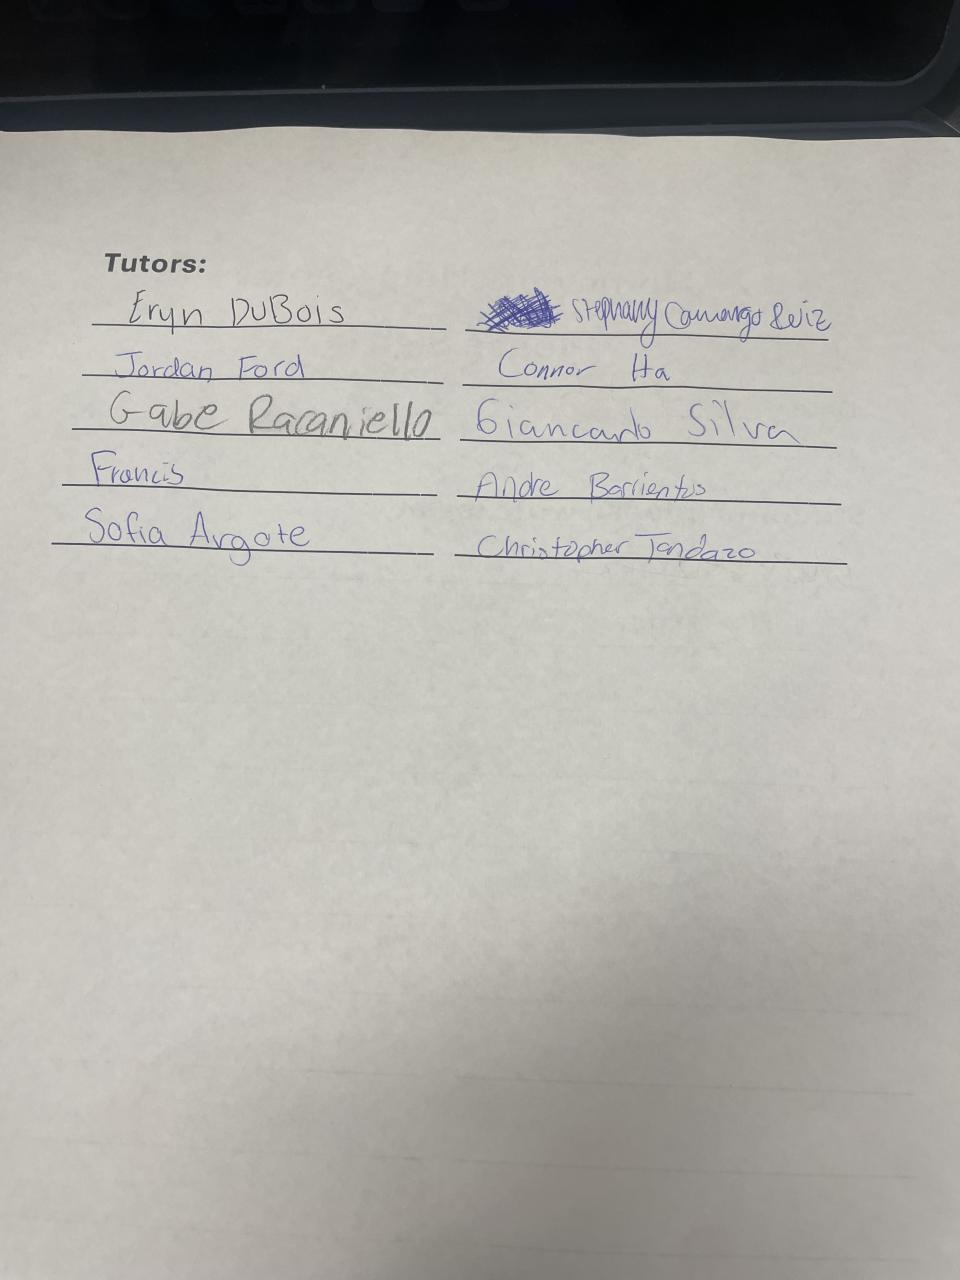 Tutors:
Eryn DuBois
Stephany Camango Ruiz
Jordan Ford
Connor Ha
Gabe Racaniello
Giancarlo Silva
Francis
Andre Barrientos
Sofia Argote
Christopher Tandazo